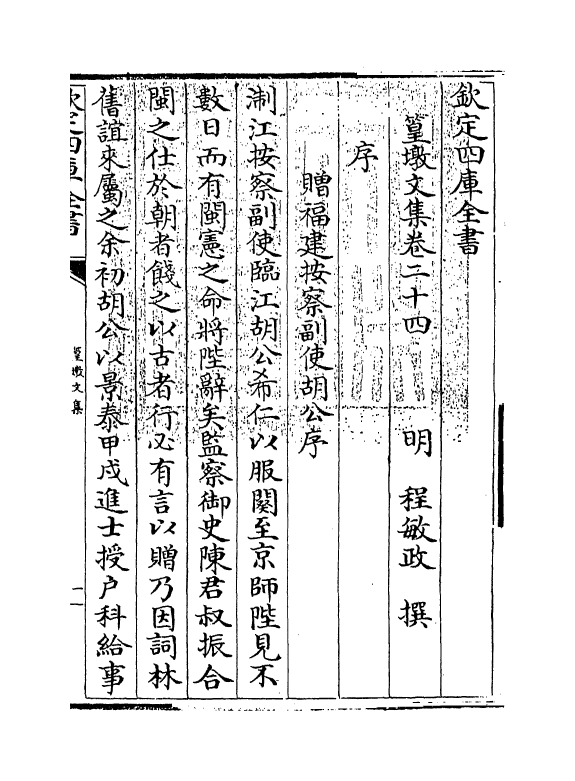 欽定四庫全書
篁墩文集卷二十四
明 程敏政 撰
序
贈福建按察副使胡公序
淛江按察副使臨江胡公希仁以服闋至京師陛見不
數日而有閩憲之命將陛辭矣監察御史陳君叔振合
閩之仕於朝者餞之以古者行必有言以贈乃因詞林
舊誼來屬之余初胡公以景泰甲戌進士授户科給事
欽定四庫全書
篁墩文集
一